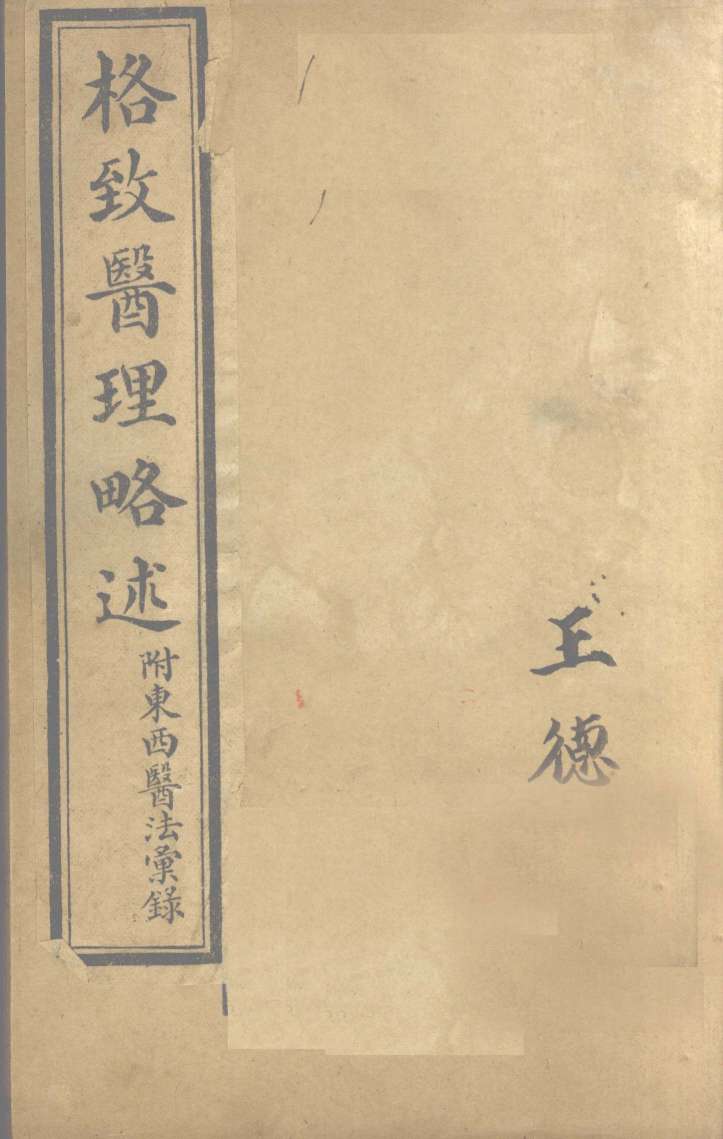 格致醫理略述
附東西醫法彙錄
王德